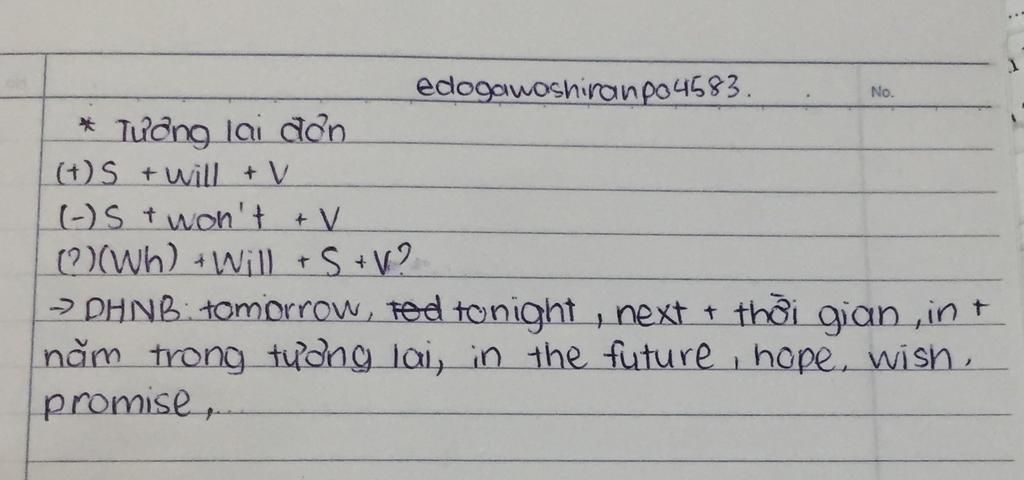 edogawoshiranpo4583.
No.
* Tương lai đơn
(+) S + will + V
(-) S + won't + V
(?) (Wh) + Will + S + V?
→ DHNB: tomorrow, ted tonight, next + thời gian, in +
năm trong tương lai, in the future, hope, wish,
promise,...